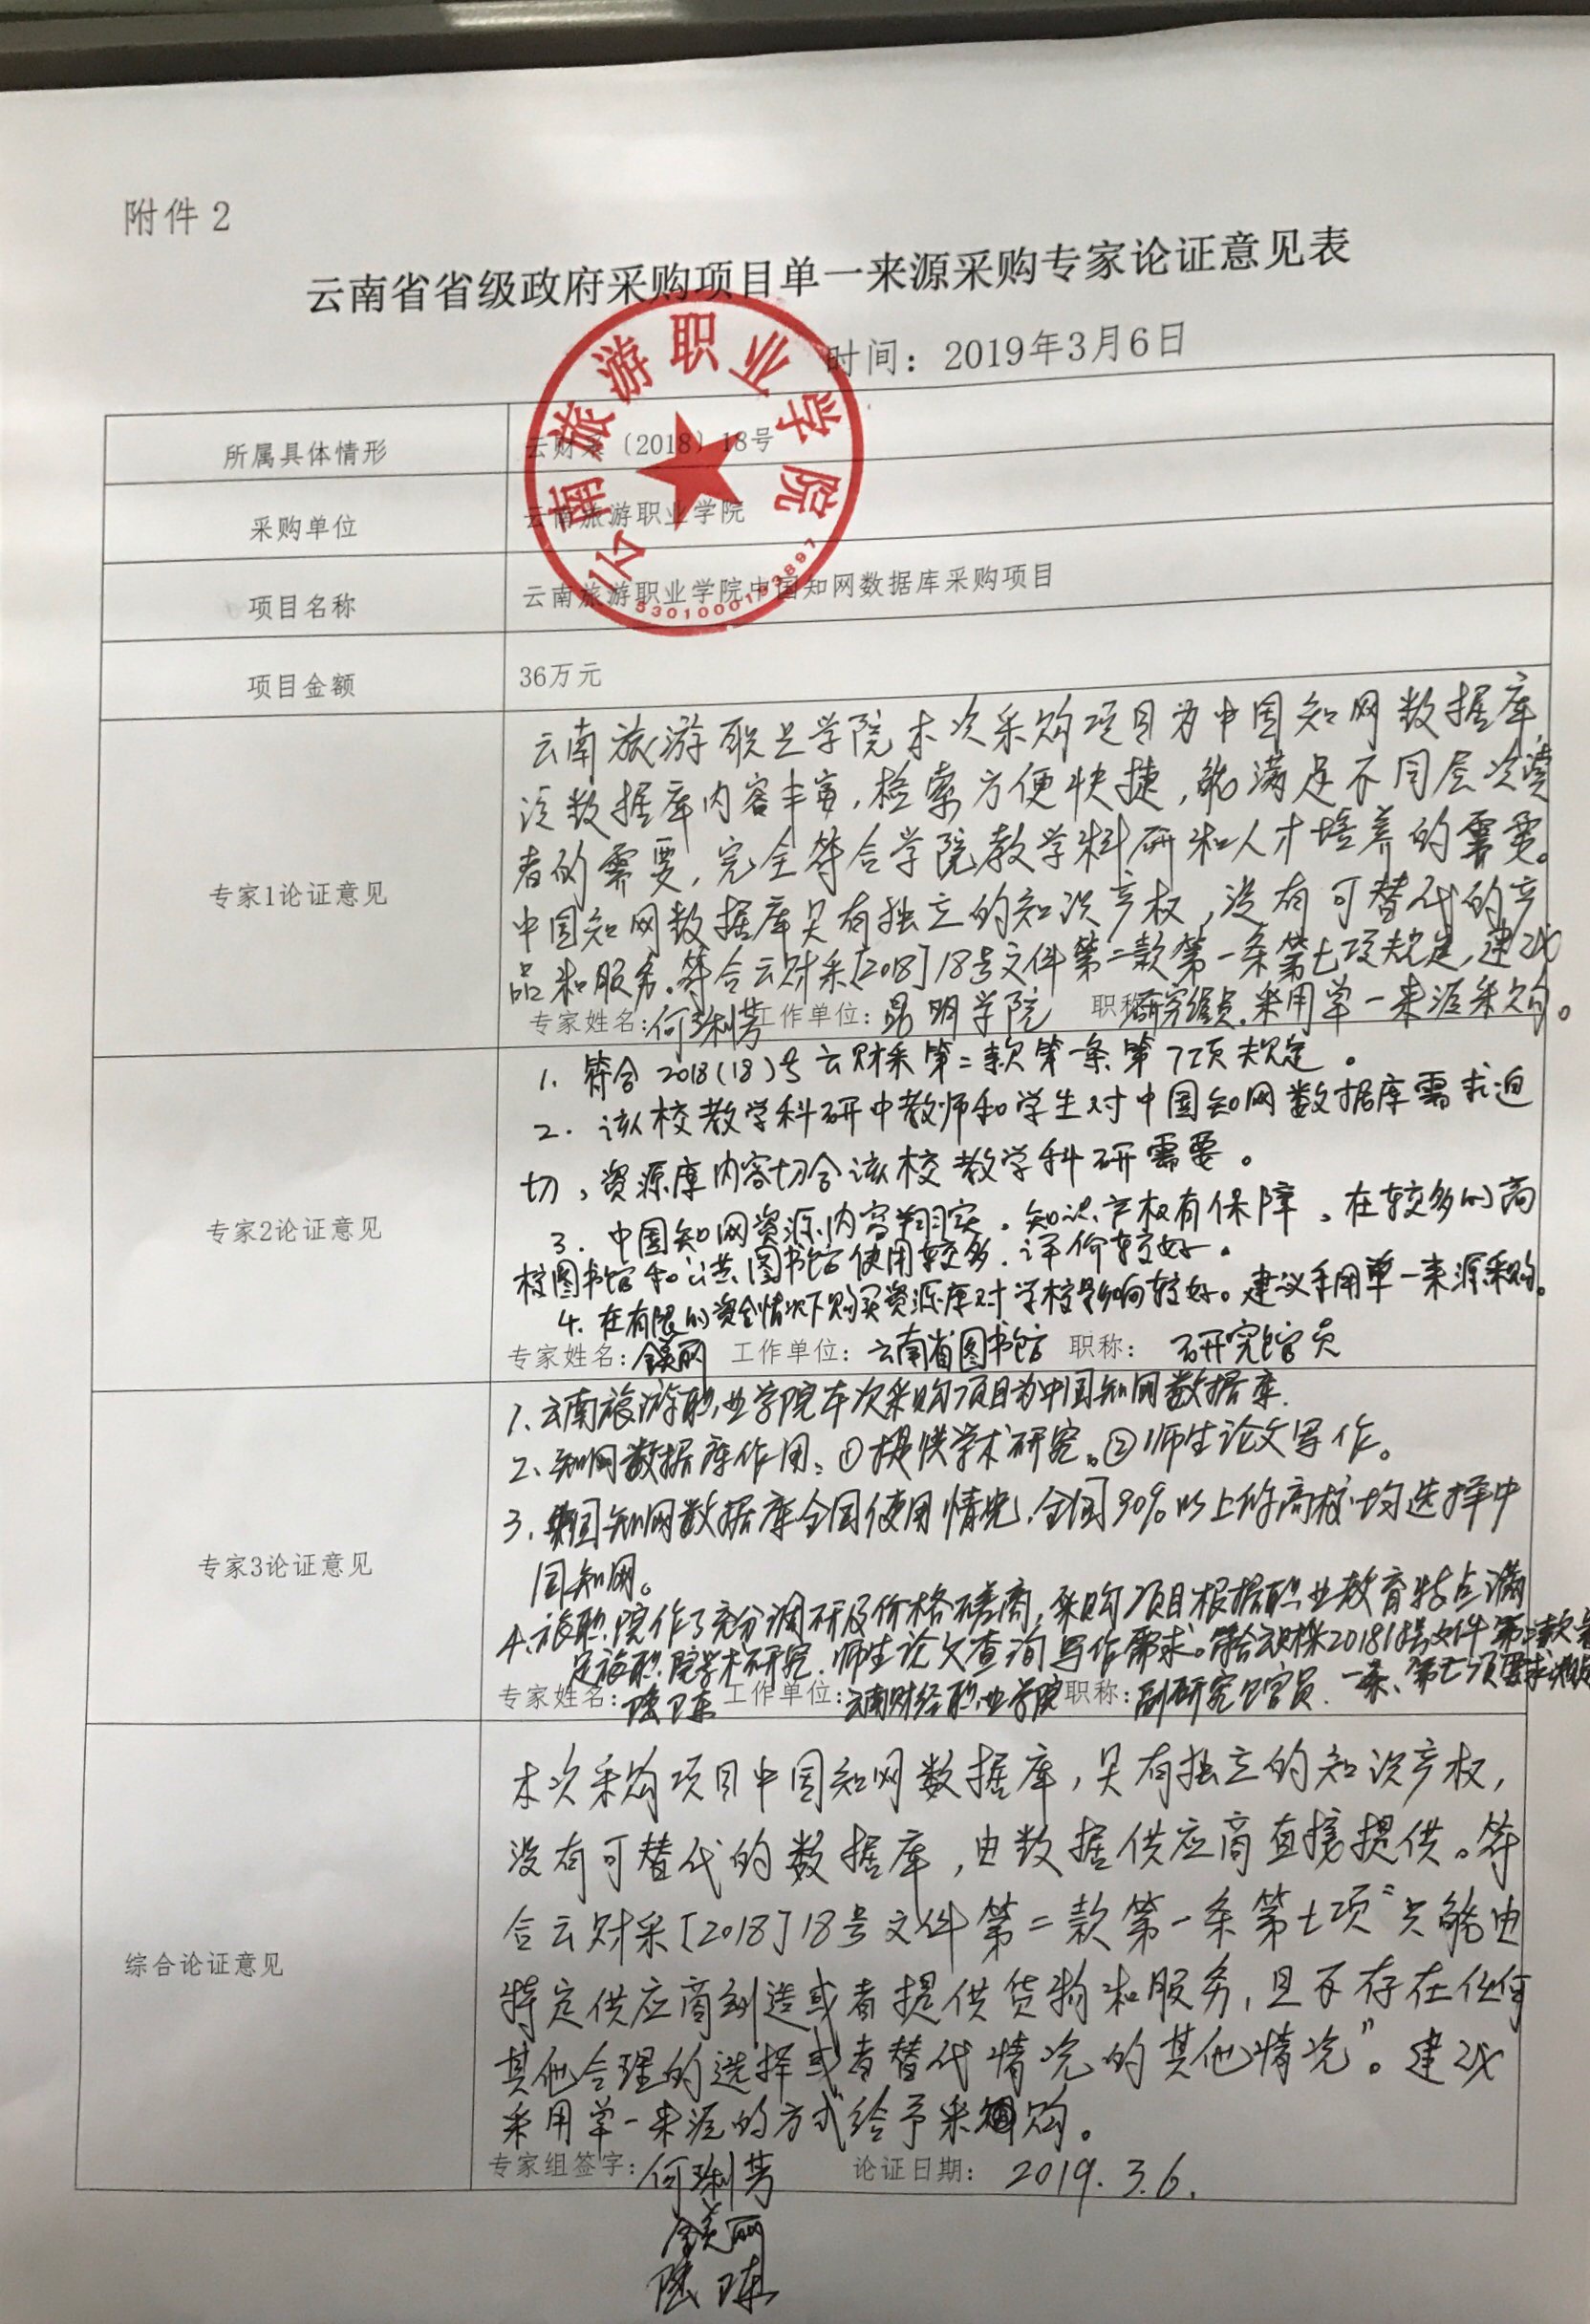 附件 2
云南省省级政府采购项目单一来源采购专家论证意见表
时间：2019年3月6日
云南旅游职业学院
所属具体情形 云财采〔2018〕18号
采购单位 云南旅游职业学院
项目名称 云南旅游职业学院中国知网数据库采购项目
项目金额 36万元
专家1论证意见
云南旅游职业学院本次采购项目为中国知网数据库,
该数据库内容丰富,检索方便快捷,能满足不同层次读
者的需要,完全符合学院教学科研和人才培养的需要。
中国知网数据库具有独立的知识产权,没有可替代的产
品和服务。符合云财采[2018]18号文件第二款第一条第七项规定,建议
采用单一来源采购。
专家姓名：何 芳 工作单位：昆明学院 职称：研究馆员
专家2论证意见
1. 符合2018(18)号云财采第二款第一条第7项规定。
2. 该校教学科研中教师和学生对中国知网数据库需求迫
切,资源库内容切合该校教学科研需要。
3. 中国知网资源内容翔实。知识产权有保障。在较多的高
校图书馆和公共图书馆使用较多,评价较好。
4. 在有限的资金情况下购买资源库对学校影响较好。建议采用单一来源采购。
专家姓名： 工作单位：云南省图书馆 职称：研究馆员
专家3论证意见
1、云南旅游职业学院本次采购项目为中国知网数据库.
2、知网数据库作用：①提供学术研究。②师生论文写作。
3、中国知网数据库全国使用情况,全国90%以上的高校均选择中
国知网。
4、旅职院作了充分调研及价格磋商,采购项目根据职业教育特点满
足旅职院学术研究、师生论文查询写作需求。符合云财采201818号文件第二款第
一条、第七项要求
专家姓名： 工作单位：云南财经职业学院 职称：副研究馆员
综合论证意见
本次采购项目中国知网数据库,具有独立的知识产权,
没有可替代的数据库,由数据供应商直接提供。符
合云财采[2018]18号文件第二款第一条第七项“只能由
特定供应商制造或者提供货物和服务,且不存在任何
其他合理的选择或者替代情况的其他情况”。建议
采用单一来源的方式给予采购。
专家组签字：何 芳 论证日期：2019.3.6.